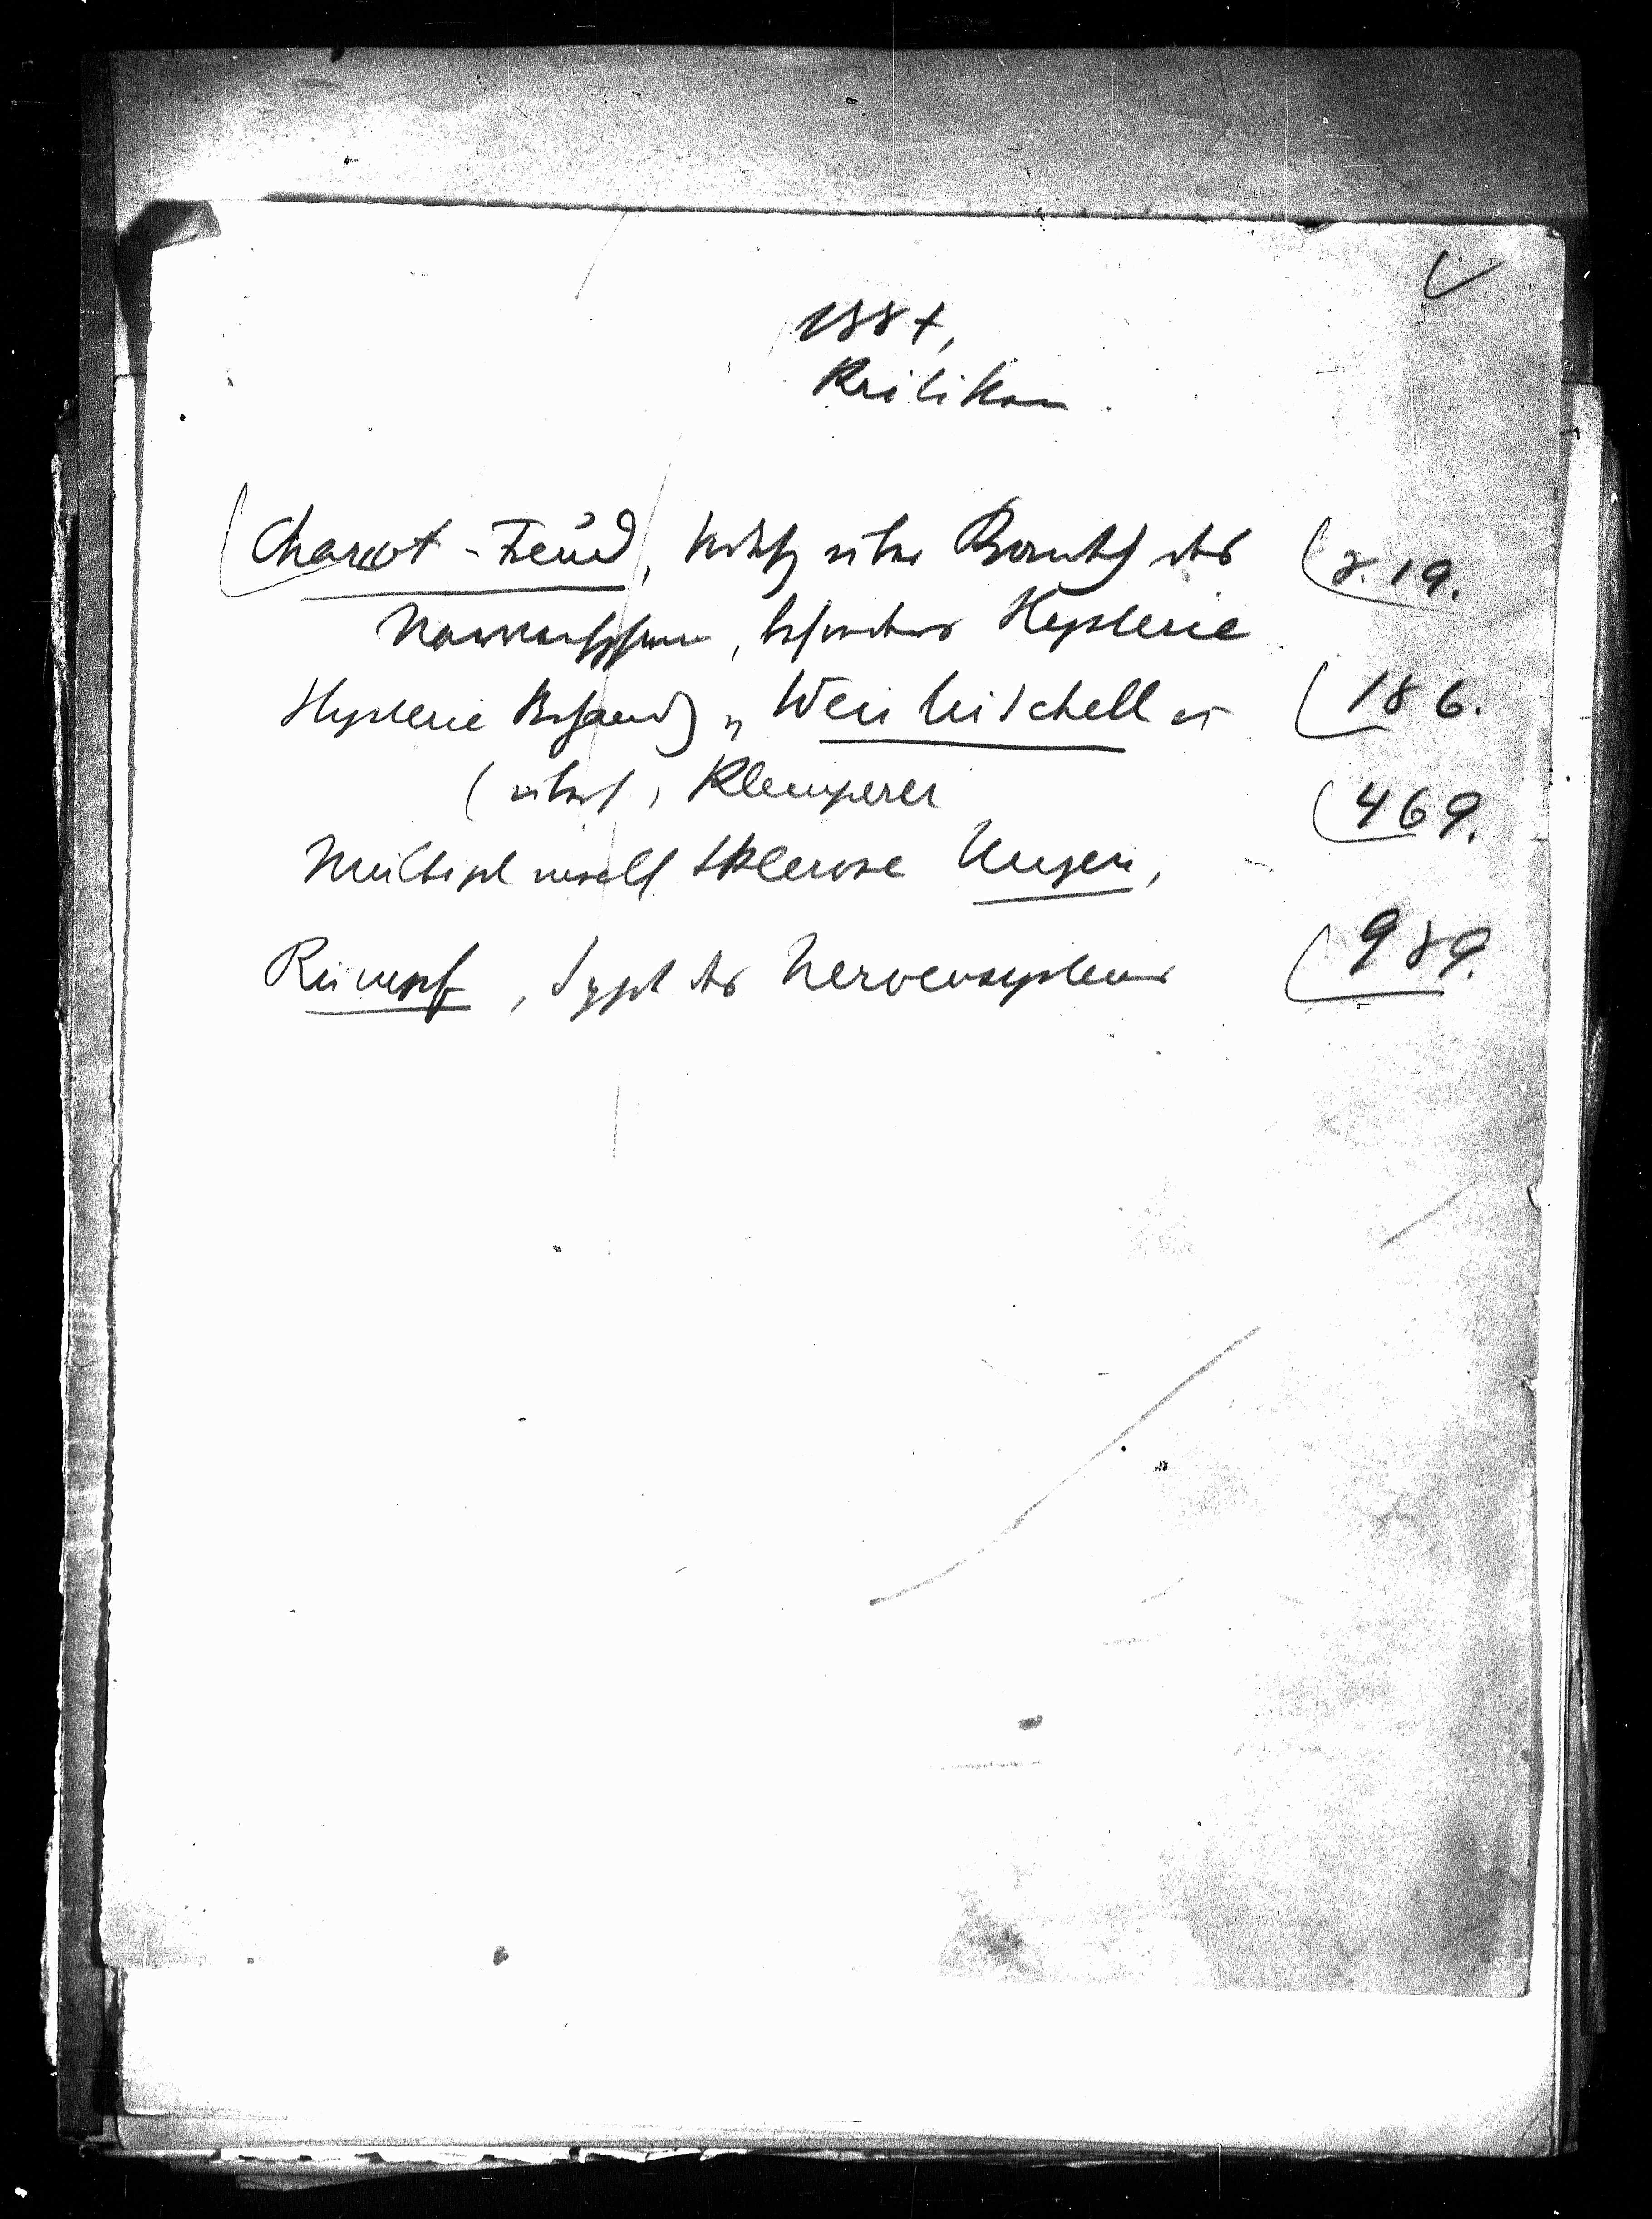 1887,
Kritiken
Charcot - Freud, über Krankh des S. 19.
Nervensystems, besonders Hysterie
Hysterie Behandl n Weir Mitchell 186.
(übers, Klemperer 469.
Multipl Sklerose Unger,
Rumpf, Syph des Nervensystems 989.